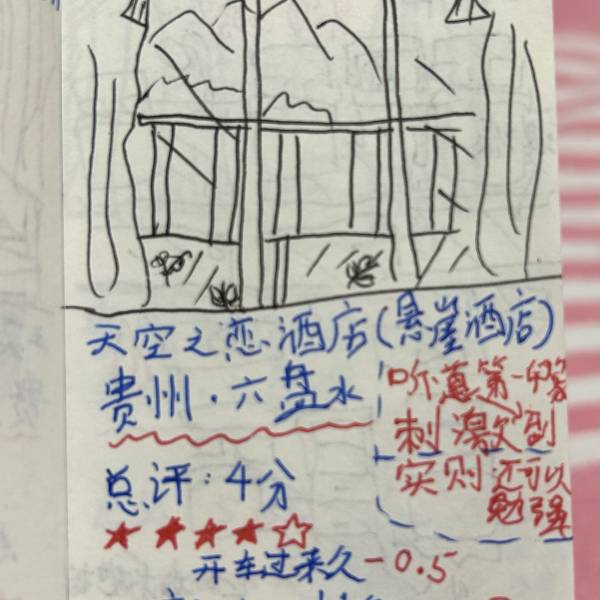 天空之恋酒店(悬崖酒店)
贵州·六盘水
听着第一缘
刺激到
实则还可以
勉强
总评:4分
★★★★☆
开车过来久-0.5